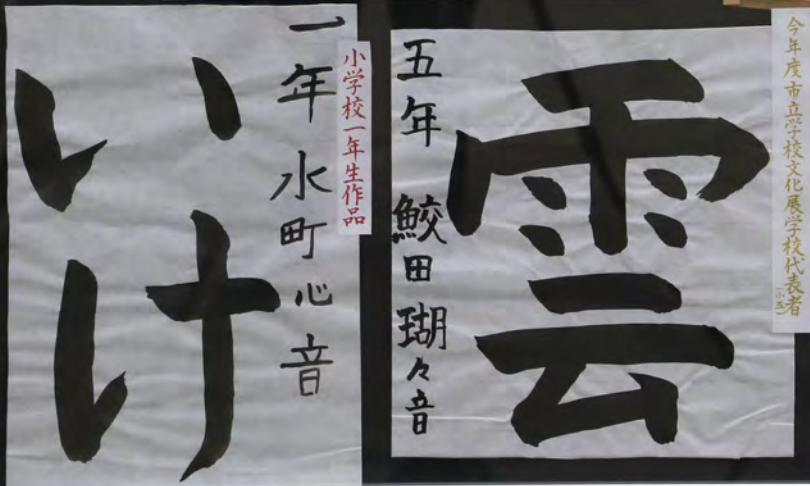 今年度市立学校文化展学校代表者
小五
雲
五年 鮫田瑚々音
小学校一年生作品
一年 水町心音
いけ